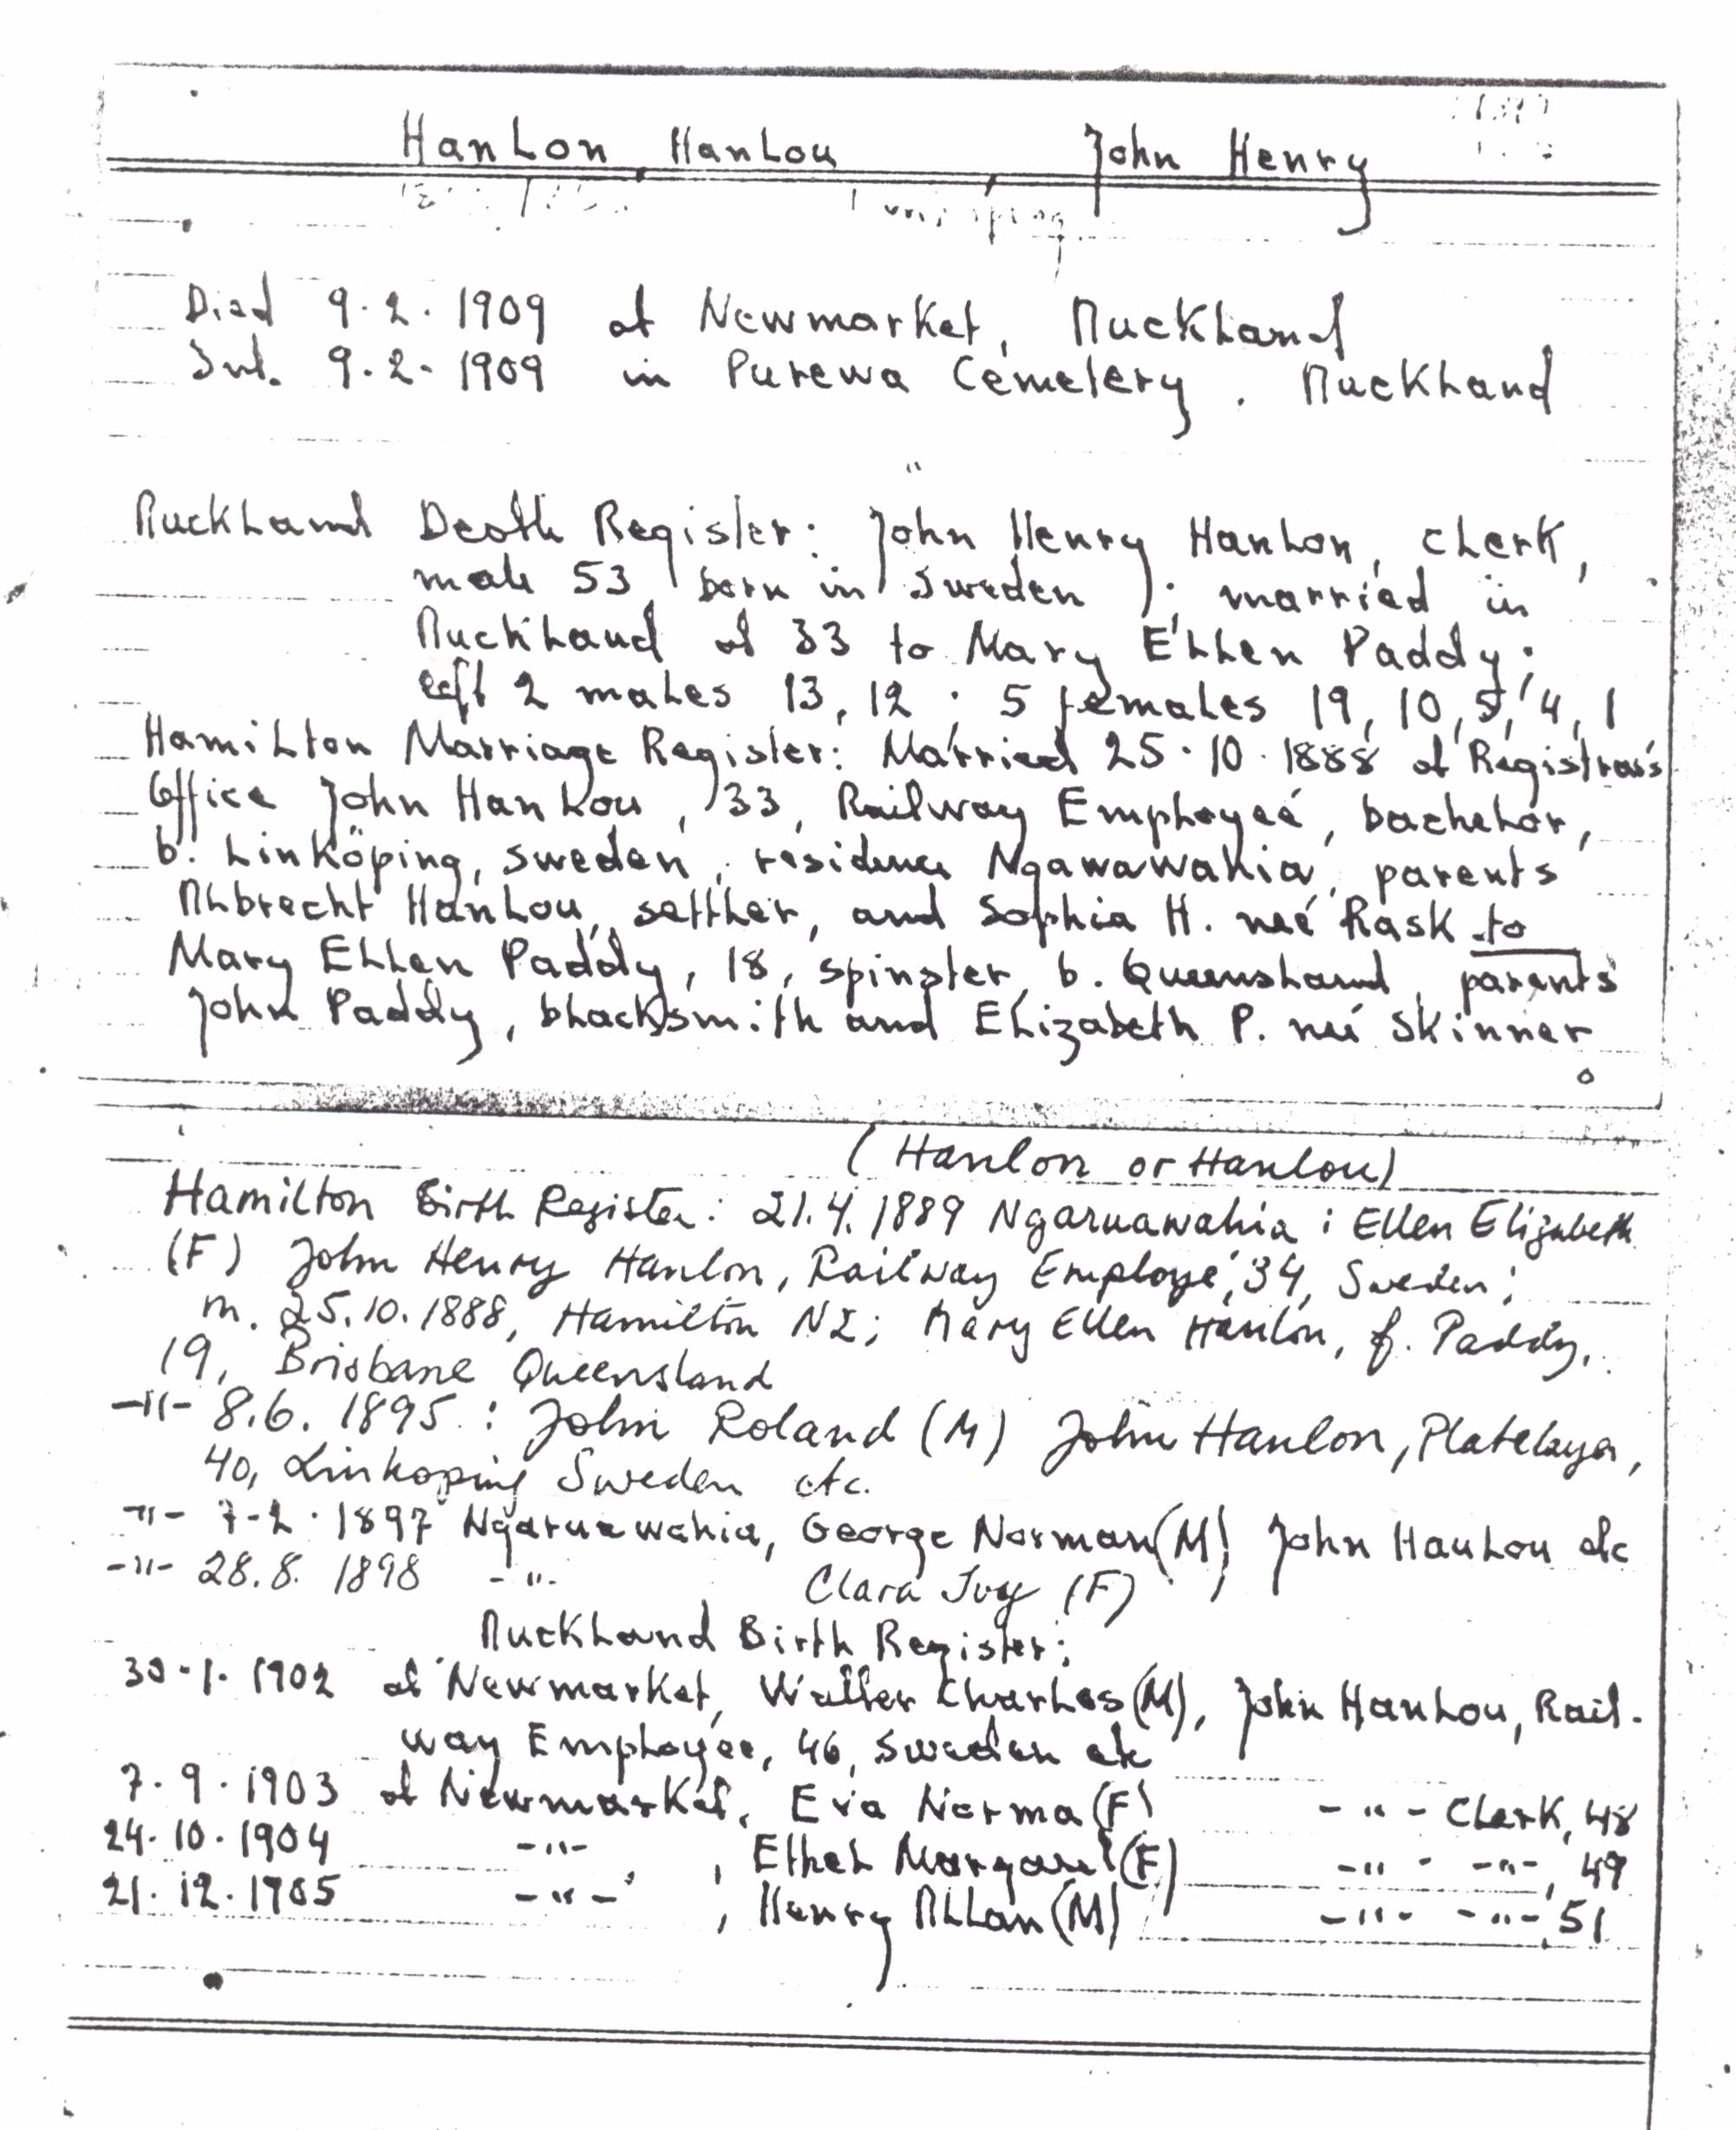 Hanlon, Hanlou, John Henry
Died 9.2.1909 at Newmarket, Auckland
Int. 9.2.1909 in Purewa Cemetery. Auckland
Auckland Death Register: John Henry Hanlon, clerk,
male 53, born in Sweden ); married in
Auckland at 33 to Mary Ellen Paddy;
left 2 males 13, 12; 5 females 19, 10, 5, 4, 1
Hamilton Marriage Register: Married 25.10.1888 at Registrar's
Office John Hanlou, 33, Railway Employeé, bachelor,
b. Linköping, Sweden, residence Ngawawahia, parents
Albrecht Hanlou, settler, and Sophia H. neé Rask to
Mary Ellen Paddy, 18, spinster, b. Queensland, parents
John Paddy, blacksmith and Elizabeth P. neé Skinner
(Hanlon or Hanlou)
Hamilton Birth Register: 21.4.1889 Ngaruawahia: Ellen Elizabeth
(F) John Henry Hanlon, Railway Employé, 34, Sweden;
m. 25.10.1888, Hamilton NZ; Mary Ellen Hanlon, f. Paddy,
19, Brisbane Queensland
-"- 8.6.1895: John Roland (M) John Hanlon, Platelayer,
40, Linkoping Sweden etc.
-"- 7-2.1897 Ngaruawahia, George Norman (M) John Hanlou etc
-"- 28.8.1898 -"- Clara Ivy (F)
Auckland Birth Register:
30.1.1902 at Newmarket, Walter Charles (M), John Hanlou, Rail-
way Employée, 46, Sweden etc
7.9.1903 at Newmarket, Eva Norma (F) -"- Clerk, 48
24.10.1904 -"-, Ethel Margaret (F) -"- -"-, 49
21.12.1905 -"-, Henry Allan (M) -"- -"-, 51